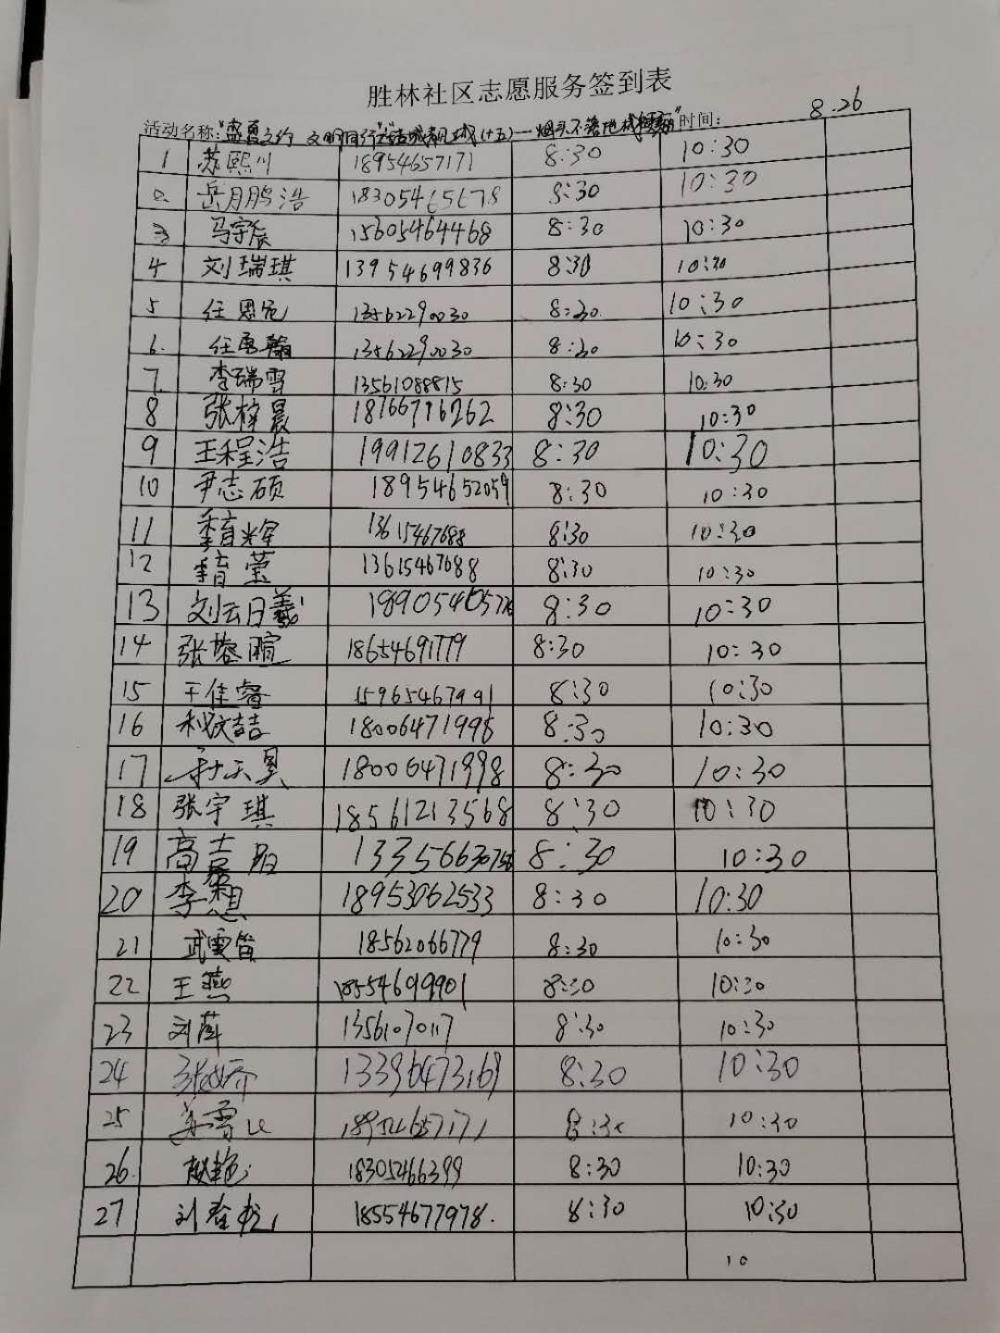 胜林社区志愿服务签到表
8.26
活动名称:"盛夏之约 文明同行""洁城靓城(十五)—烟头不落地 时间:
1 苏熙川 18954657171 8:30 10:30
2 岳月鹏浩 18305465678 8:30 10:30
3 马宇辰 15605464468 8:30 10:30
4 刘瑞琪 13954699836 8:30 10:30
5 任恩 13562290030 8:30 10:30
6. 任惠翰 13562290030 8:30 10:30
7. 李瑞雪 13561088815 8:30 10:30
8 张梓晨 18766716262 8:30 10:30
9 王程浩 19912610833 8:30 10:30
10 尹志硕 18954652059 8:30 10:30
11 季育辉 13615467688 8:30 10:30
12 季育莹 13615467688 8:30 10:30
13 刘云日羲 8:30 10:30
14 张容暄 18654691779 8:30 10:30
15 王佳睿 15965467991 8:30 10:30
16 喆 18006471998 8:30 10:30
17 18006471998 8:30 10:30
18 张宇琪 18561213568 8:30 10:30
19 高 8:30 10:30
20 李想 18953062533 8:30 10:30
21 武雯笛 18562066779 8:30 10:30
22 王燕 18554699901 8:30 10:30
23 刘萍 13561070117 8:30 10:30
24 13396473169 8:30 10:30
25 8:30 10:30
26. 18305466399 8:30 10:30
27 刘春 18554677978. 8:30 10:30
10